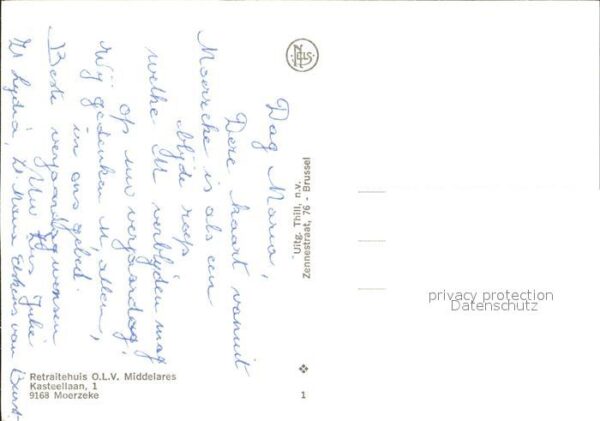 Dag Maria,
Deze kaart vanuit
Moerzeke is als een
blijde roep
welke U verblijden mag
op uw verjaardag.
Wij gedenken U, allen,
in ons gebed.
Beste verjaardagwensen
Uw Zus Julie
Zr Lydia, Zr Maria van Baest.
Uitg. Thill, n.v.
Zennestraat, 76 - Brussel
Retraitehuis O.L.V. Middelares
Kasteellaan, 1
9168 Moerzeke
1
privacy protection
Datenschutz